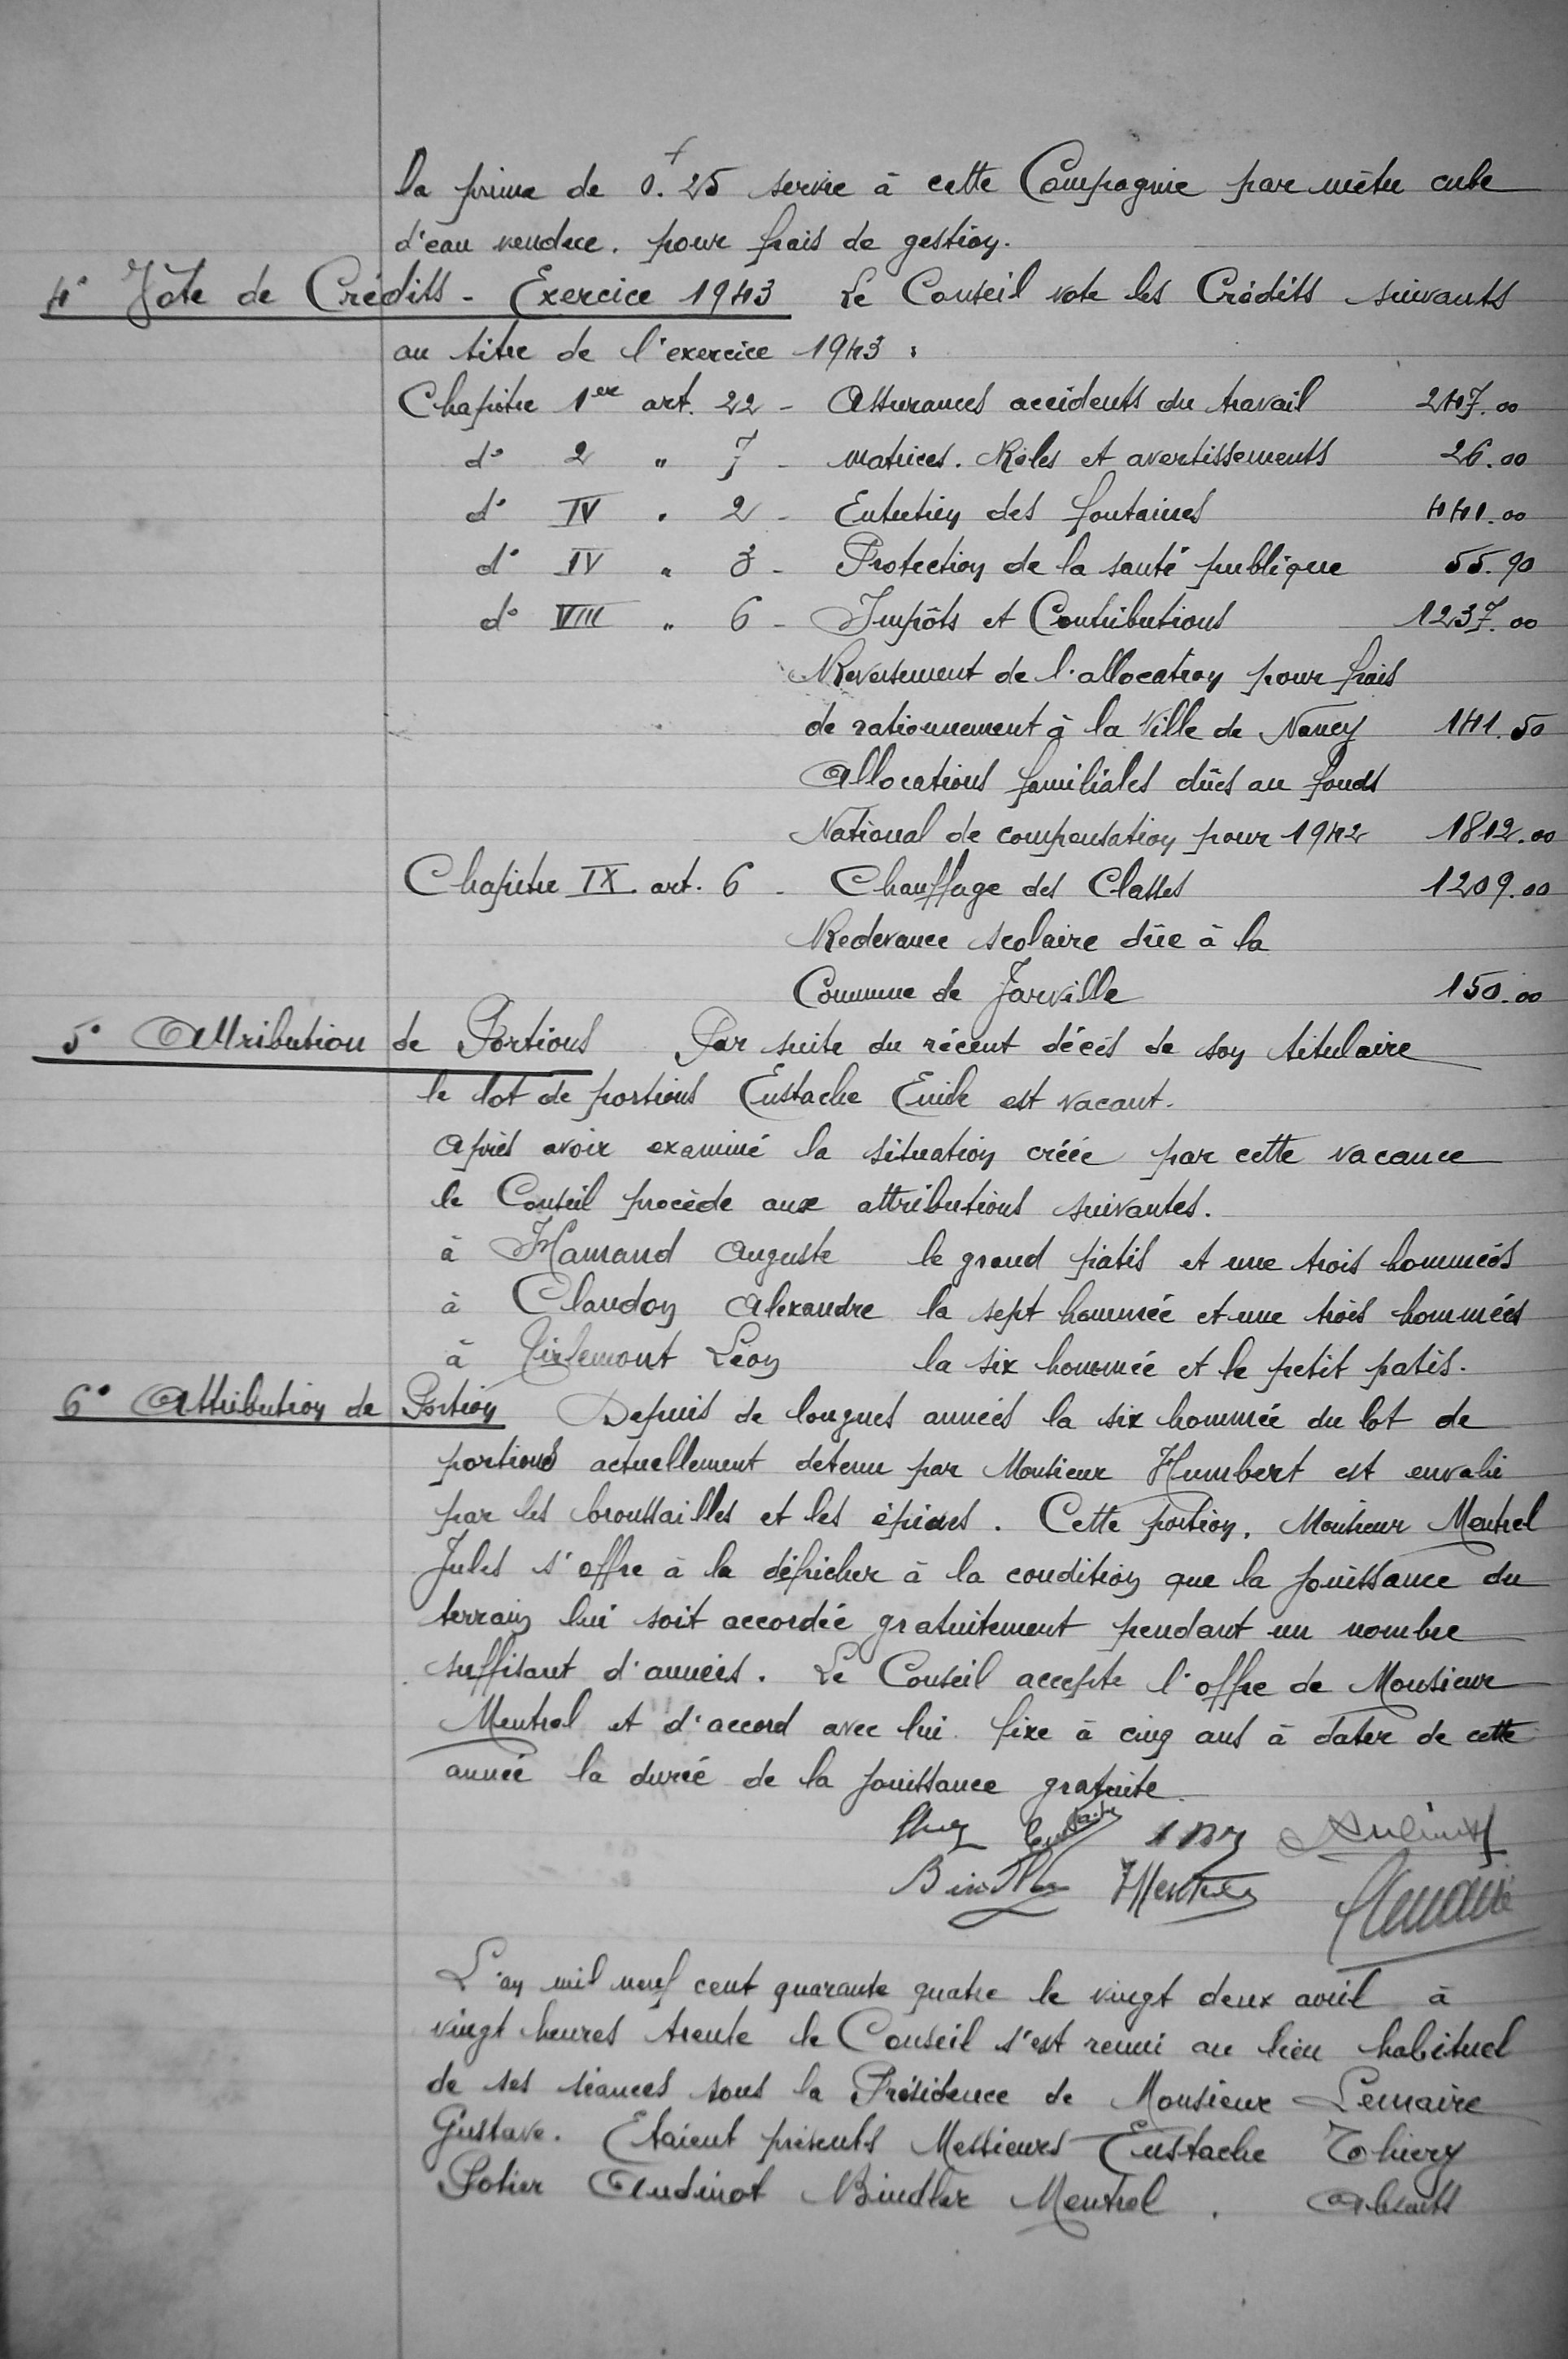 la prime de 0f.25 servie à cette Compagnie par mètre cube
d'eau vendue. pour frais de gestion.
4° Vote de Crédits - Exercice 1943 Le Conseil vote les Crédits suivants
au titre de l'exercice 1943 :
Chapitre 1er art. 22 - Assurances accidents du travail 247.00
d° 2 " 7 - matrices. Rôles et avertissements 26.00
d° IV " 2 - Entretien des fontaines 441.00
d° IV " 3 - Protection de la santé publique 55.90
d° VIII " 6 - Impôts et Contributions 1237.00
Reversement de l'allocation pour frais
de rationnement à la Ville de Nancy 141.50
Allocations familiales dûes au fonds
National de compensation pour 1942 1812.00
Chapitre IX art. 6 - Chauffage des Classes 1209.00
Redevance scolaire dûe à la
Commune de Jarville 150.00
5° Attribution de Portions Par suite du récent décès de son titulaire
le lot de portions Eustache Emile est vacant.
Après avoir examiné la situation créée par cette vacance
le Conseil procède aux attributions suivantes.
à Hamand Auguste le grand patis et une trois hommées
à Claudon Alexandre la sept hommée et une trois hommées
à Tirlemont Léon la six hommée et le petit patis.
6° Attribution de Portion Depuis de longues années la six hommée du lot de
portions actuellement detenu par Monsieur Humbert est envahie
par les broussailles et les épines. Cette portion, Monsieur Mentrel
Jules s'offre à la défricher à la condition que la jouissance du
terrain lui soit accordée gratuitement pendant un nombre
suffisant d'années. Le Conseil accepte l'offre de Monsieur
Mentrel et d'accord avec lui fixe à cinq ans à dater de cette
année la durée de la jouissance gratuite.
L'an mil neuf cent quarante quatre le vingt deux avril à
vingt heures trente le Conseil s'est reuni au lieu habituel
de ses séances sous la Présidence de Monsieur Lemaire
Gustave. Etaient présents Messieurs Eustache Thiery
Potier Audinot Bindler Mentrel. Absents